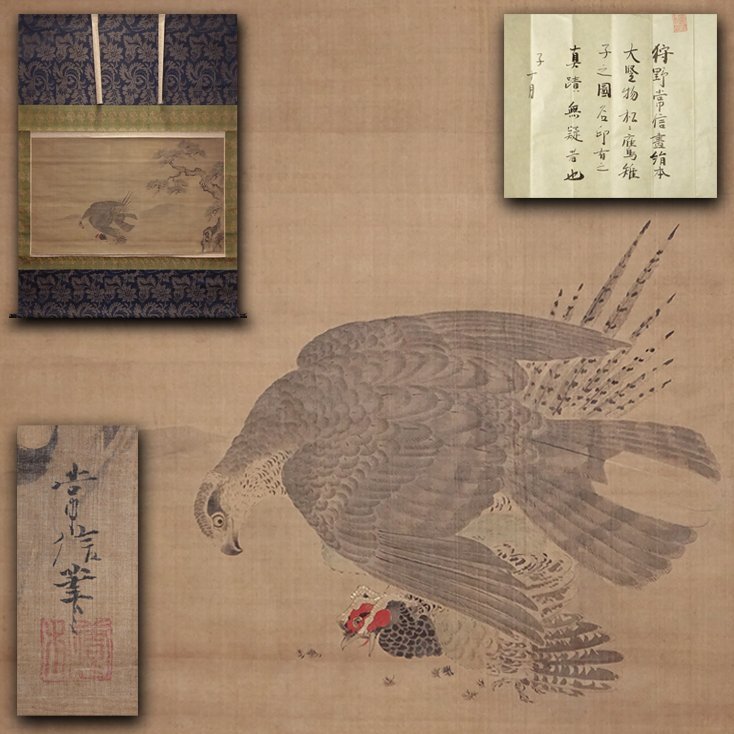 狩野常信畫絹本
大竪物松ニ鷹雉
子之圖名印有之
真蹟無疑者也
常信筆